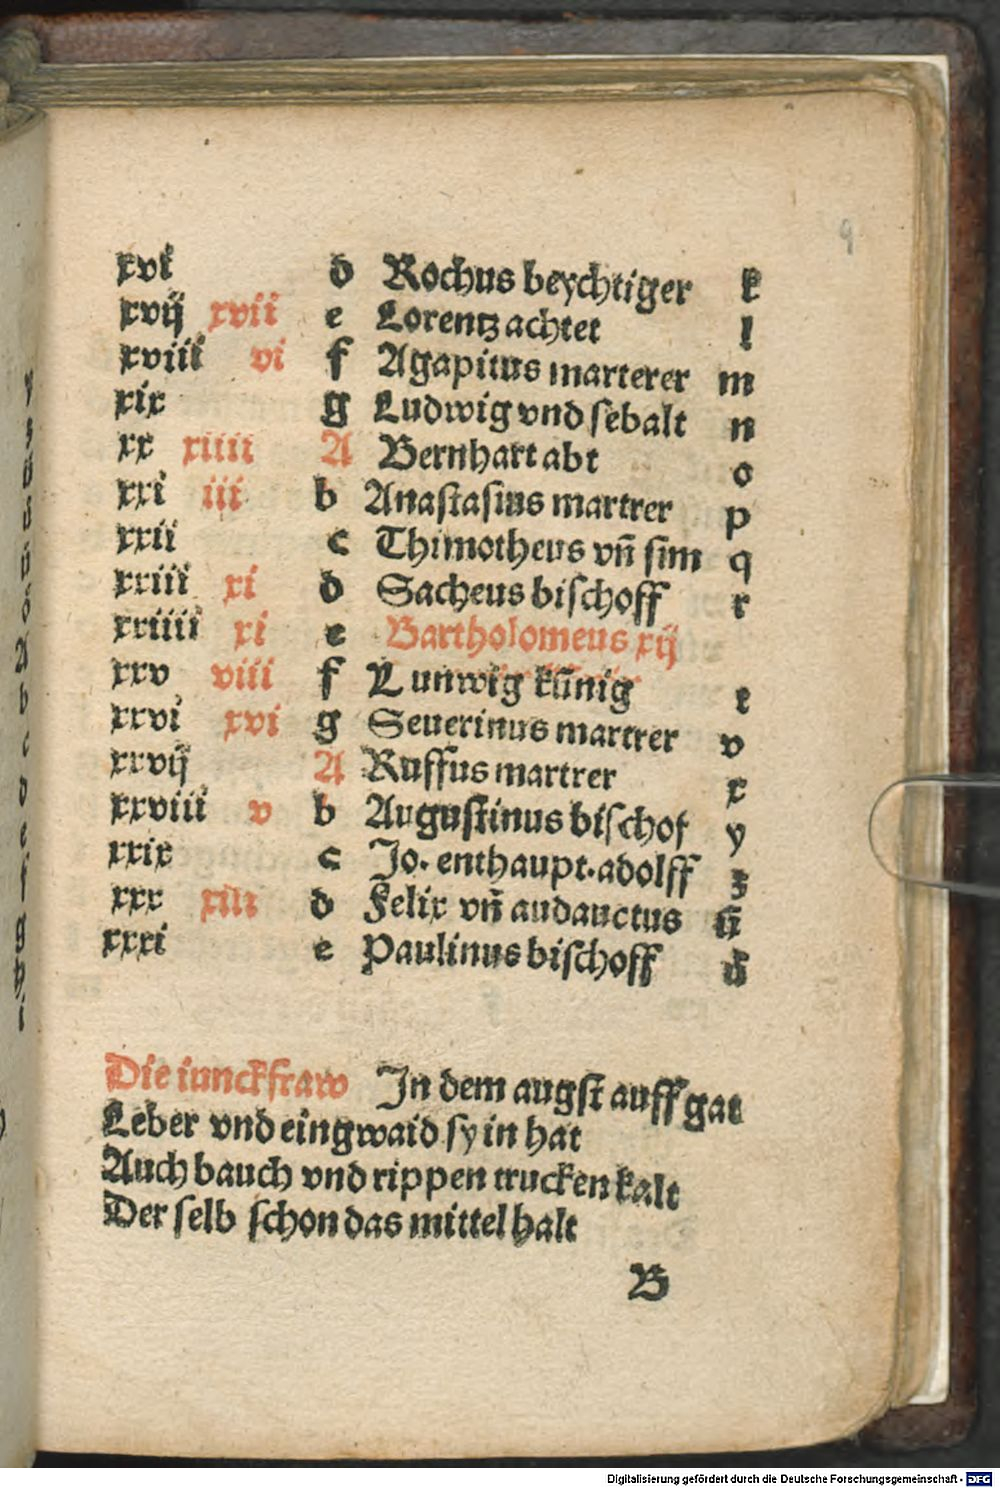 9
xvi d Rochus beychtiger k
xvij xvii e Lorentz achtet l
xviii vi f Agapitus marterer m
xix g Ludwig vnd sebalt n
xx xiiii A Bernhart abt o
xxi iii b Anastasius martrer p
xxii c Thimotheus vn̄ sim q
xxiii xi d Sacheus bischoff r
xxiiii xi e Bartholomeus xij
xxv viii f Lunwig kūnig t
xxvi xvi g Seuerinus martrer v
xxvij A Ruffus martrer x
xxviii v b Augustinus bischof y
xxix c Jo. enthaupt. adolff z
xxx xiii d Felix vn̄ audauctus
xxxi e Paulinus bischoff
Die iunckfraw In dem augst auff gat
Leber vnd eingwaid sy in hat
Auch bauch vnd rippen trucken kalt
Der selb schon das mittel halt
B
Digitalisierung gefördert durch die Deutsche Forschungsgemeinschaft - DFG